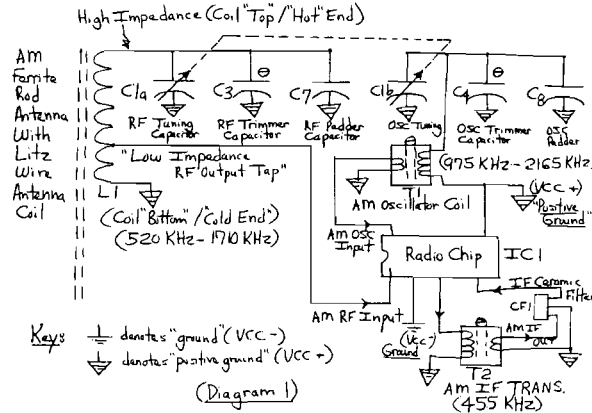 High Impedance (Coil "Top" / "Hot" End)
AM
Ferrite
Rod
Antenna
With
Litz
Wire
Antenna
Coil
C1a
RF Tuning
Capacitor
C3
RF Trimmer
Capacitor
C7
RF Padder
Capacitor
C1b
OSC Tuning
C4
OSC Trimmer
Capacitor
C8
OSC
Padder
"Low Impedance
RF Output Tap"
L1
(Coil "Bottom" / "Cold End")
(520 KHz-1710 KHz)
T1
AM Oscillator Coil
(975 KHz-2165 KHz)
(VCC+)
"Positive
Ground"
AM OSC
Input
Radio Chip
IC1
AM RF Input
IF Ceramic
Filter
CF1
(VCC-)
Ground
AM IF
OUT
T2
AM IF TRANS.
(455 KHz)
Key:
denotes "ground" (VCC-)
denotes "positive ground" (VCC+)
(Diagram 1)